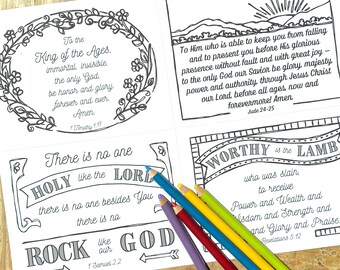 To the
King of the Ages,
immortal, invisible,
the only God,
be honor and glory
forever and ever
Amen.
1 Timothy 1:17
To Him who is able to keep you from falling
and to present you before His glorious
presence without fault and with great joy –
to the only God our Savior be glory, majesty
power and authority, through Jesus Christ
our Lord, before all ages, now and
forevermore! Amen.
Jude 24-25
There is no one
HOLY like the LORD
there is no one besides You
there is no
ROCK like our GOD
1 Samuel 2:2
WORTHY is the LAMB
who was slain
to receive
Power and Wealth and
Wisdom and Strength and
and Glory and Praise
Revelations 5:12